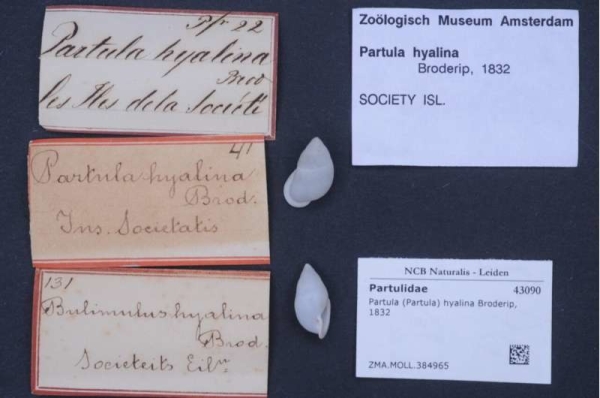 Pfr 22
Partula hyalina
Brod
les Iles de la Société
41
Partula hyalina
Brod.
Ins. Societatis
131
Bulimulus hyalina
Brod.
Societeits Eiln
Zoölogisch Museum Amsterdam
Partula hyalina
Broderip, 1832
SOCIETY ISL.
NCB Naturalis - Leiden
Partulidae 43090
Partula (Partula) hyalina Broderip,
1832
ZMA.MOLL.384965